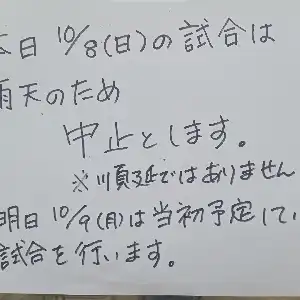 本日 10/8(日)の試合は
雨天のため
中止とします。
※順延ではありません
明日 10/9(月)は当初予定してい
試合を行います。